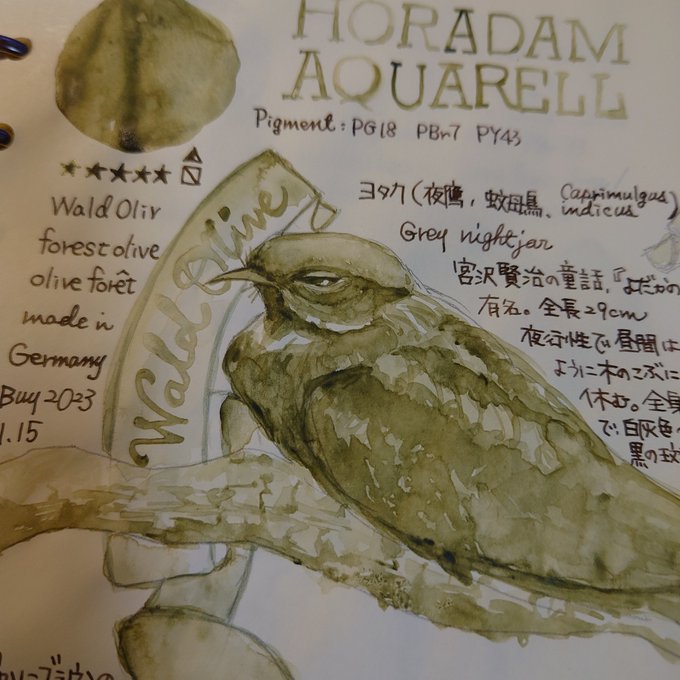 HORADAM
AQUARELL
Pigment: PG18 PBr7 PY43
★★★★★
Wald Oliv
forest olive
olive forêt
made in
Germany
Buy 2023
1.15
Wald Olive
ヨタカ(夜鷹, 蚊母鳥、Caprimulgus indicus)
Grey nightjar
宮沢賢治の童話,『よだかの
有名。全長29cm
夜行性で昼間は
ように木のこぶに
休む。全身
で白灰色
黒の